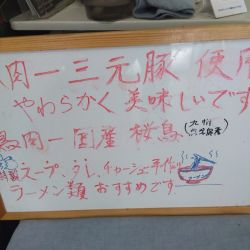 肉一三元豚 使用
やわらかく 美味しいです
鳥肉一国産 桜鳥
(九州
スープ、タレ、チャーシュー手作り
ラーメン類 おすすめです
ラーメン